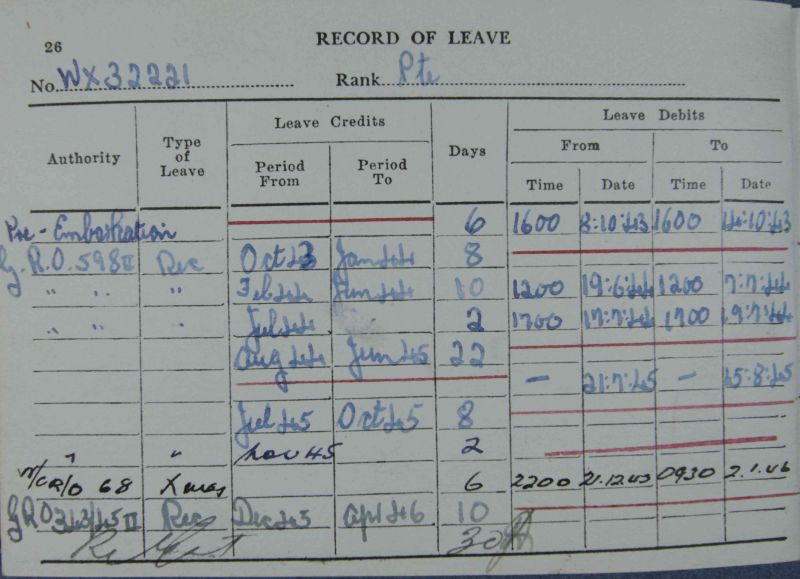 26 RECORD OF LEAVE
No. WX32221 Rank Pte
Leave Credits Leave Debits
Authority Type of Leave Period From Period To Days From To
Time Date Time Date
Pre-Embarkation 6 1600 8:10:43 1600 14:10:43
G.R.O. 598 II Rec Oct 43 Jan 44 8
" " " Feb 44 Jun 44 10 1200 19:6:44 1200 7:7:44
" " " Jul 44 2 1700 17:7:44 1700 19:7:44
Aug 44 Jun 45 22
— 21:7:45 — 15:8:45
Jul 45 Oct 45 8
" " Nov 45 2
R/O 68 Xmas 6 2200 21.12.45 0930 2.1.46
GRO 343/45 II Rec Dec 45 Apl 46 10
30